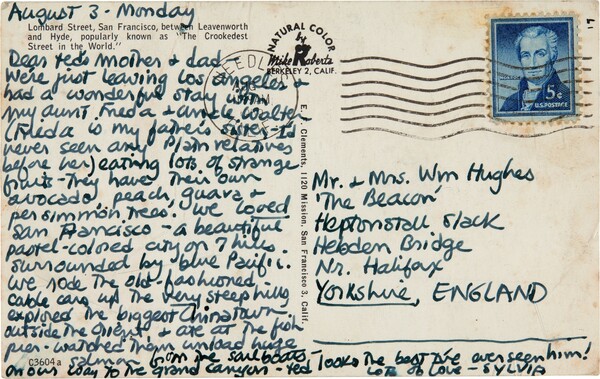 August 3 - Monday
Lombard Street, San Francisco, between Leavenworth
and Hyde, popularly known as "The Crookedest
Street in the World."
Dear Ted's mother & dad -
We're just leaving Los Angeles &
had a wonderful stay with
my aunt Frieda & uncle Walter
(Frieda is my father's sister - I'd
never seen any Plath relatives
before her) eating lots of strange
fruits - they have their own
avocado, peach, guava &
persimmon trees. We loved
San Francisco - a beautiful
pastel-colored city on 7 hills
surrounded by blue Pacific.
We rode the old-fashioned
cable cars up the very steep hills
explored the biggest Chinatown
outside the Orient & ate at the fish
pier - watched them unload huge
salmon from the sailboats
on our way to the grand canyon - Ted looks the best I've ever seen him!
Lots of love - SYLVIA
C3604a
NATURAL COLOR
by
Mike Roberts
BERKELEY 2, CALIF.
E. F. Clements, 1120 Mission, San Francisco 3, Calif.
5¢
U.S. POSTAGE
Mr. & Mrs. Wm Hughes
'The Beacon'
Heptonstall Slack
Hebden Bridge
Nr. Halifax
Yorkshire, ENGLAND